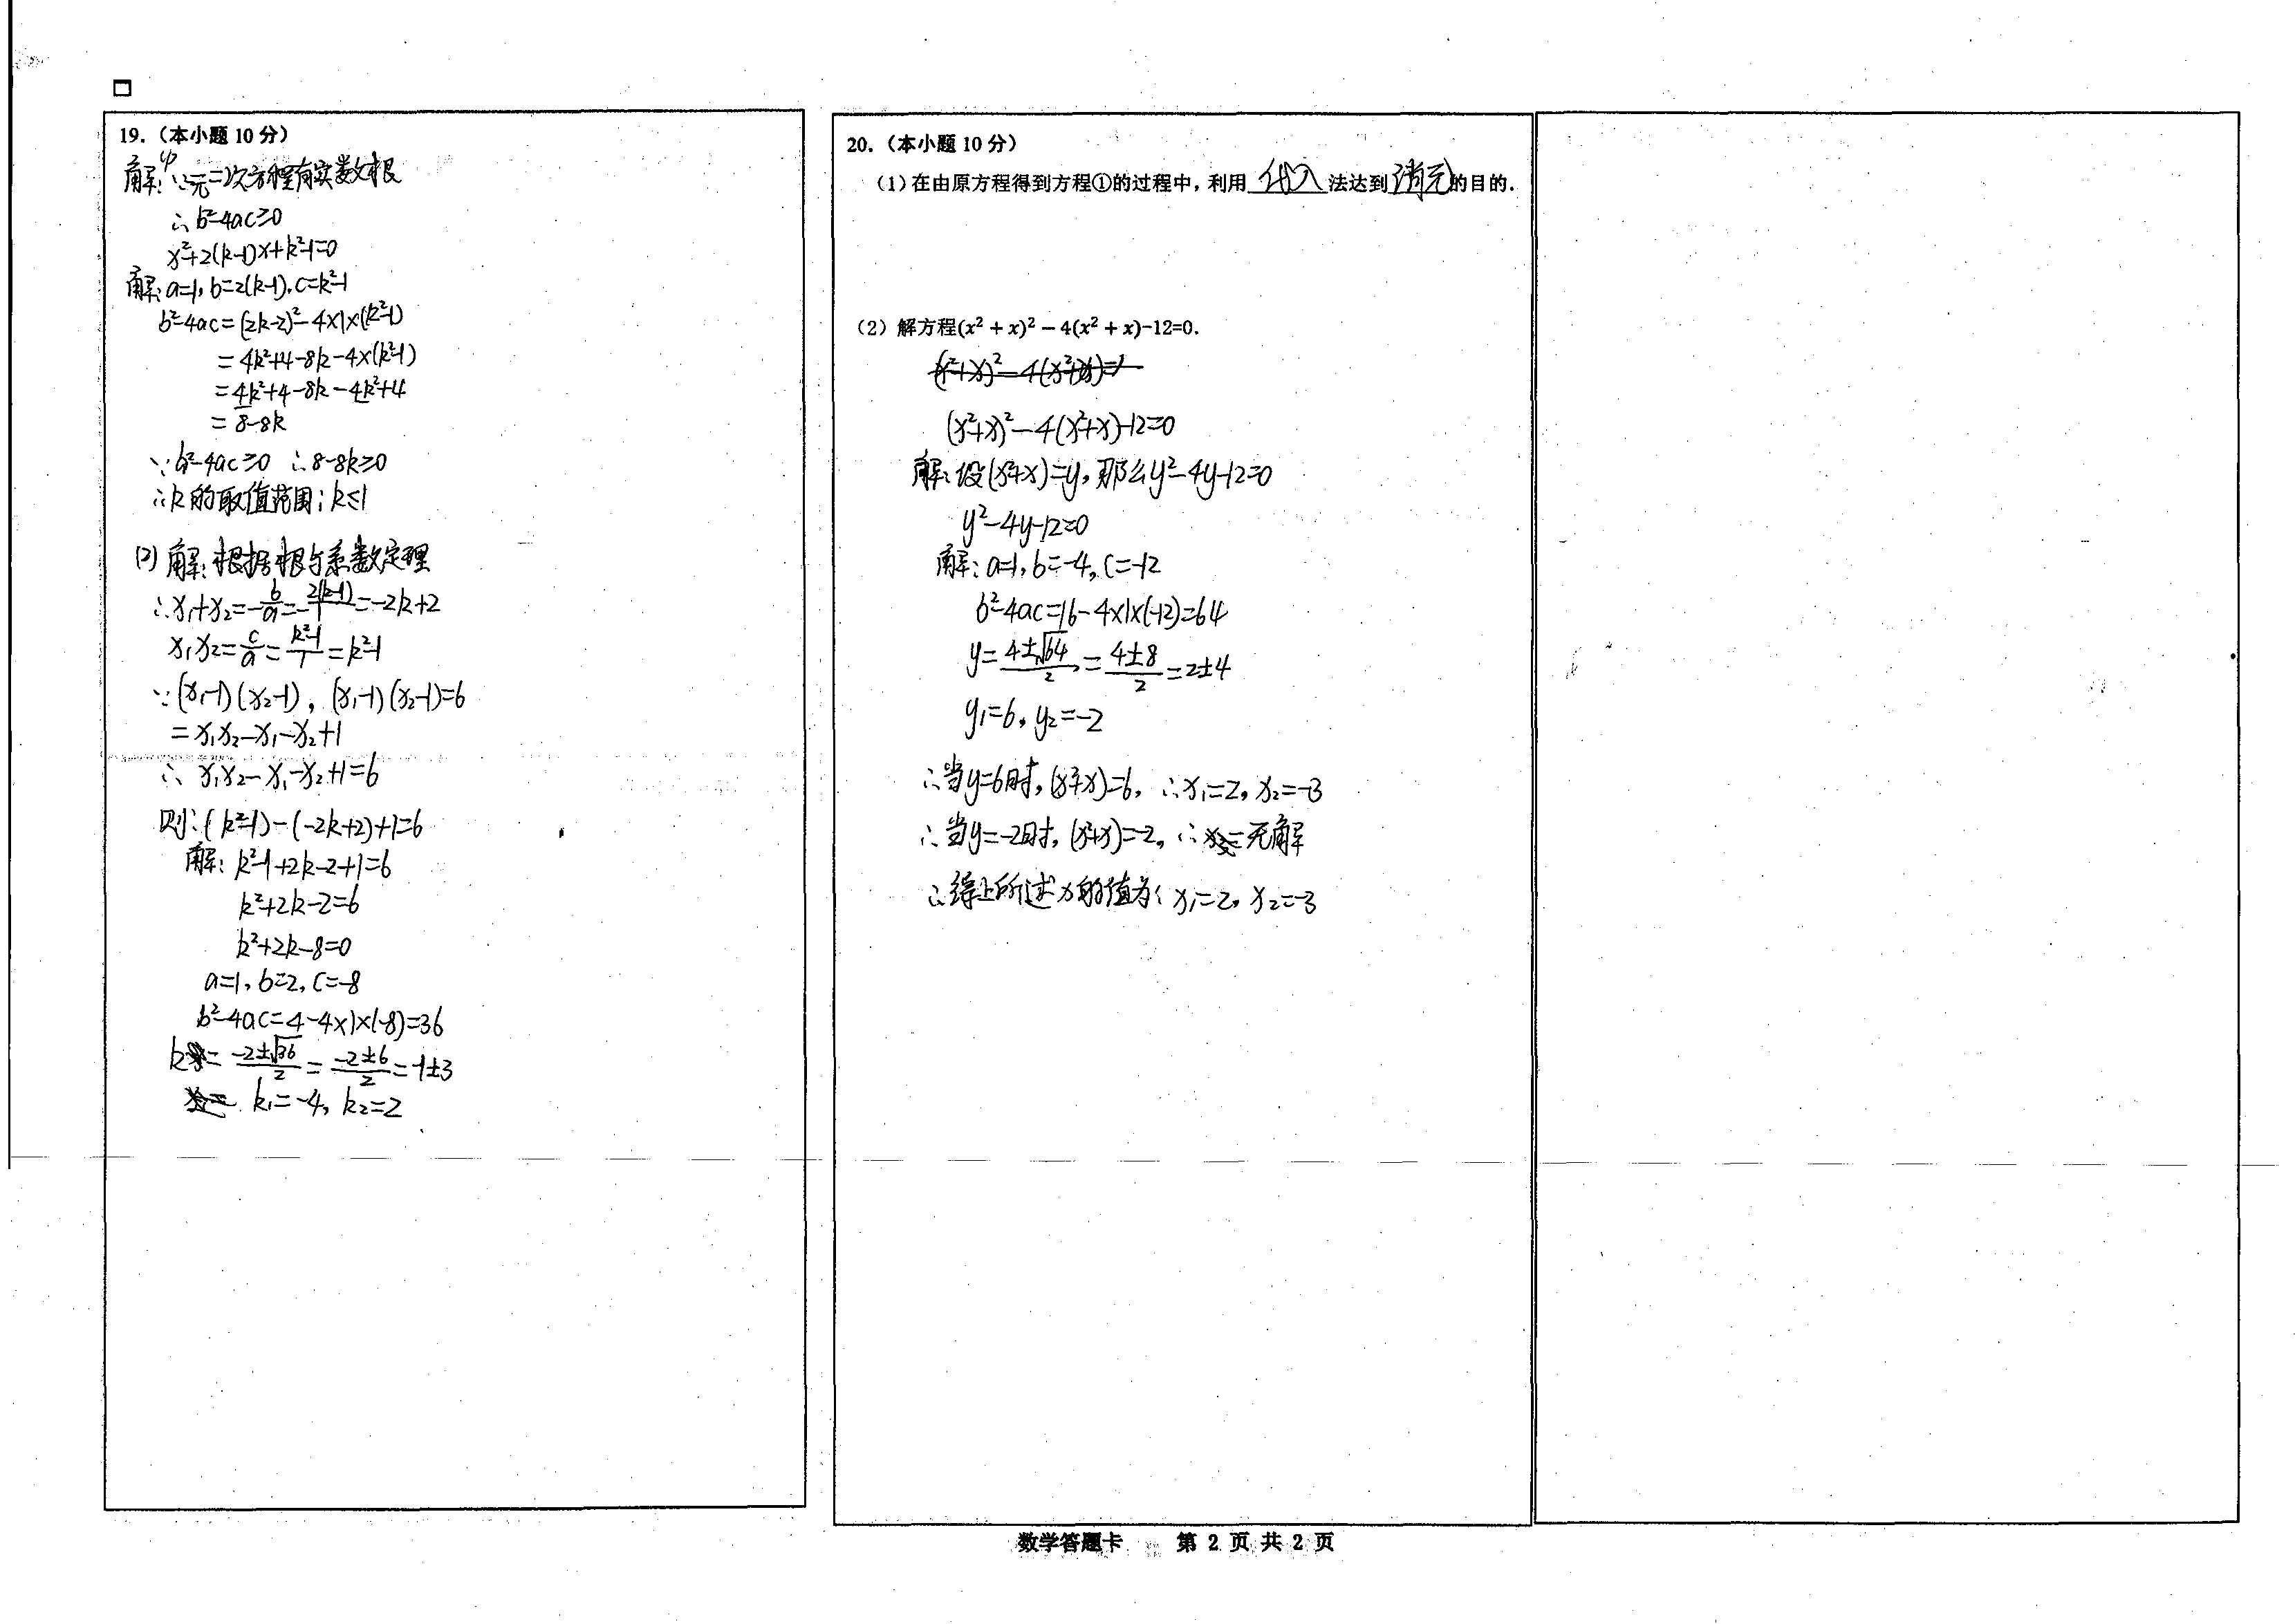 19.（本小题 10 分）
解:⁽¹⁾∵一元二次方程有实数根
∴ b²-4ac≥0
x²+2(k-1)x+k²-1=0
解:a=1, b=2(k-1), c=k²-1
b²-4ac=(2k-2)²-4×1×(k²-1)
=4k²+4-8k-4×(k²-1)
=4k²+4-8k-4k²+4
=8-8k
∵b²-4ac≥0 ∴8-8k≥0
∴k的取值范围:k≤1
(2) 解:根据根与系数定理
∴x₁+x₂=-b/a=-2(k-1)/1=-2k+2
x₁x₂=c/a=(k²-1)/1=k²-1
∵(x₁-1)(x₂-1), (x₁-1)(x₂-1)=6
=x₁x₂-x₁-x₂+1
∴ x₁x₂-x₁-x₂+1=6
则:(k²-1)-(-2k+2)+1=6
解: k²-1+2k-2+1=6
k²+2k-2=6
k²+2k-8=0
a=1, b=2, c=-8
b²-4ac=4-4×1×(-8)=36
k=(-2±√36)/2=(-2±6)/2=-1±3
k₁=-4, k₂=2
20.（本小题 10 分）
（1）在由原方程得到方程①的过程中，利用 代入 法达到 消元 的目的．
（2）解方程(x² + x)² − 4(x² + x)-12=0.
(x²+x)²-4(x²+x)=1
(x²+x)²-4(x²+x)-12=0
解:设(x²+x)=y, 那么y²-4y-12=0
y²-4y-12=0
解: a=1, b=-4, c=-12
b²-4ac=16-4×1×(-12)=64
y=(4±√64)/2=(4±8)/2=2±4
y₁=6, y₂=-2
∴当y=6时, (x²+x)=6, ∴x₁=2, x₂=-3
∴当y=-2时, (x²+x)=-2, ∴无解
∴综上所述x的值为: x₁=2, x₂=-3
数学答题卡 第 2 页 共 2 页